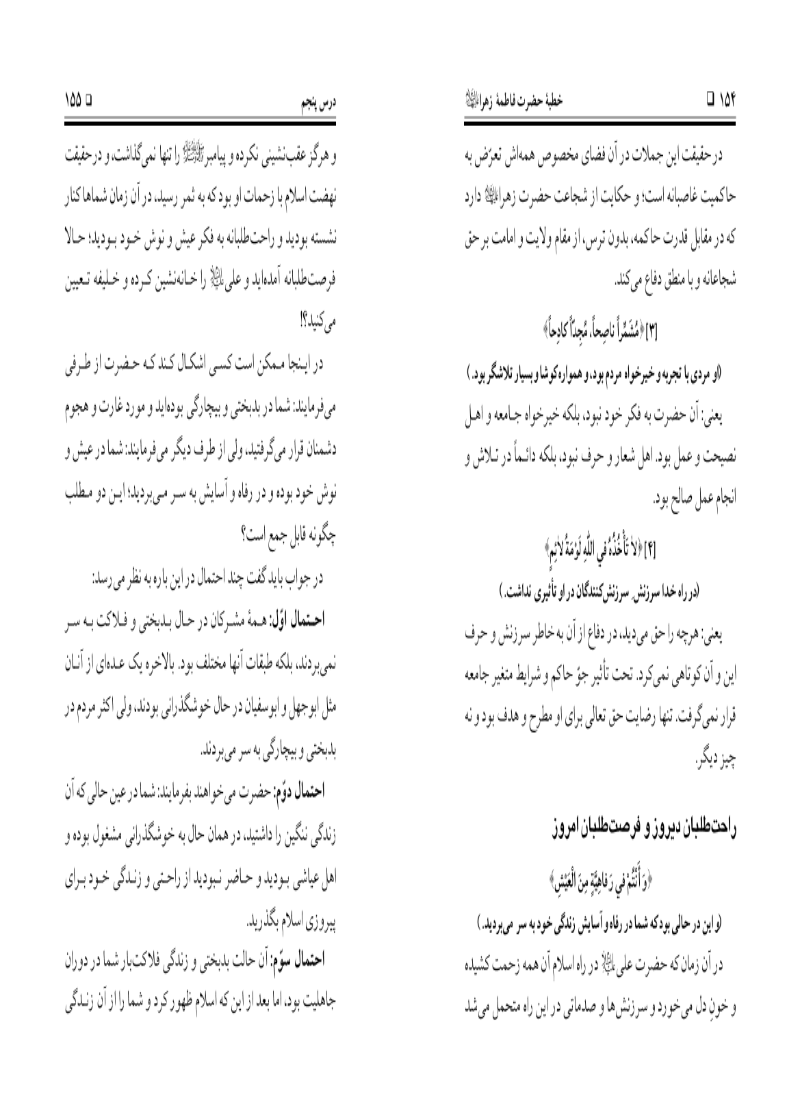 ۱۵۴ ❑ خطبهٔ حضرت فاطمهٔ زهرا
در حقیقت این جملات در آن فضای مخصوص همه‌اش تعرّض به
حاکمیت غاصبانه است؛ و حکایت از شجاعت حضرت زهرا دارد
که در مقابل قدرت حاکمه، بدون ترس، از مقام ولایت و امامت بر حق
شجاعانه و با منطق دفاع می‌کند.
[۳] ﴿مُشَمِّراً ناصِحاً، مُجِدّاً کادِحاً﴾
(او مردی با تجربه و خیرخواه مردم بود، و همواره کوشا و بسیار تلاشگر بود.)
یعنی: آن حضرت به فکر خود نبود، بلکه خیرخواه جامعه و اهل
نصیحت و عمل بود. اهل شعار و حرف نبود، بلکه دائماً در تلاش و
انجام عمل صالح بود.
[۴] ﴿لاٰ تَأْخُذُهُ فِي اللّٰهِ لَوْمَةُ لاٰئِمٍ﴾
(در راه خدا سرزنشِ سرزنش‌کنندگان در او تأثیری نداشت.)
یعنی: هرچه را حق می‌دید، در دفاع از آن به خاطر سرزنش و حرف
این و آن کوتاهی نمی‌کرد. تحت تأثیر جوّ حاکم و شرایط متغیر جامعه
قرار نمی‌گرفت. تنها رضایت حق تعالی برای او مطرح و هدف بود و نه
چیز دیگر.
راحت‌طلبان دیروز و فرصت‌طلبان امروز
﴿وَ أَنْتُمْ فِي رَفاهِيَّةٍ مِنَ الْعَيْشِ﴾
(و این در حالی بود که شما در رفاه و آسایش زندگی خود به سر می‌بردید.)
در آن زمان که حضرت علی در راه اسلام آن همه زحمت کشیده
و خونِ دل می‌خورد و سرزنش‌ها و صدماتی در این راه متحمل می‌شد
درس پنجم ❑ ۱۵۵
و هرگز عقب‌نشینی نکرده و پیامبر را تنها نمی‌گذاشت، و در حقیقت
نهضت اسلام با زحمات او بود که به ثمر رسید، در آن زمان شماها کنار
نشسته بودید و راحت‌طلبانه به فکر عیش و نوش خود بودید؛ حالا
فرصت‌طلبانه آمده‌اید و علی را خانه‌نشین کرده و خلیفه تعیین
می‌کنید؟!
در اینجا ممکن است کسی اشکال کند که حضرت از طرفی
می‌فرمایند: شما در بدبختی و بیچارگی بوده‌اید و مورد غارت و هجوم
دشمنان قرار می‌گرفتید، ولی از طرف دیگر می‌فرمایند: شما در عیش و
نوش خود بوده و در رفاه و آسایش به سر می‌بردید؛ این دو مطلب
چگونه قابل جمع است؟
در جواب باید گفت چند احتمال در این باره به نظر می‌رسد:
احتمال اوّل: همهٔ مشرکان در حال بدبختی و فلاکت به سر
نمی‌بردند، بلکه طبقات آنها مختلف بود. بالاخره یک عده‌ای از آنان
مثل ابوجهل و ابوسفیان در حال خوشگذرانی بودند، ولی اکثر مردم در
بدبختی و بیچارگی به سر می‌بردند.
احتمال دوّم: حضرت می‌خواهند بفرمایند: شما در عین حالی که آن
زندگی ننگین را داشتید، در همان حال به خوشگذرانی مشغول بوده و
اهل عیاشی بودید و حاضر نبودید از راحتی و زندگی خود برای
پیروزی اسلام بگذرید.
احتمال سوّم: آن حالت بدبختی و زندگی فلاکت‌بار شما در دوران
جاهلیت بود، اما بعد از این که اسلام ظهور کرد و شما را از آن زندگی